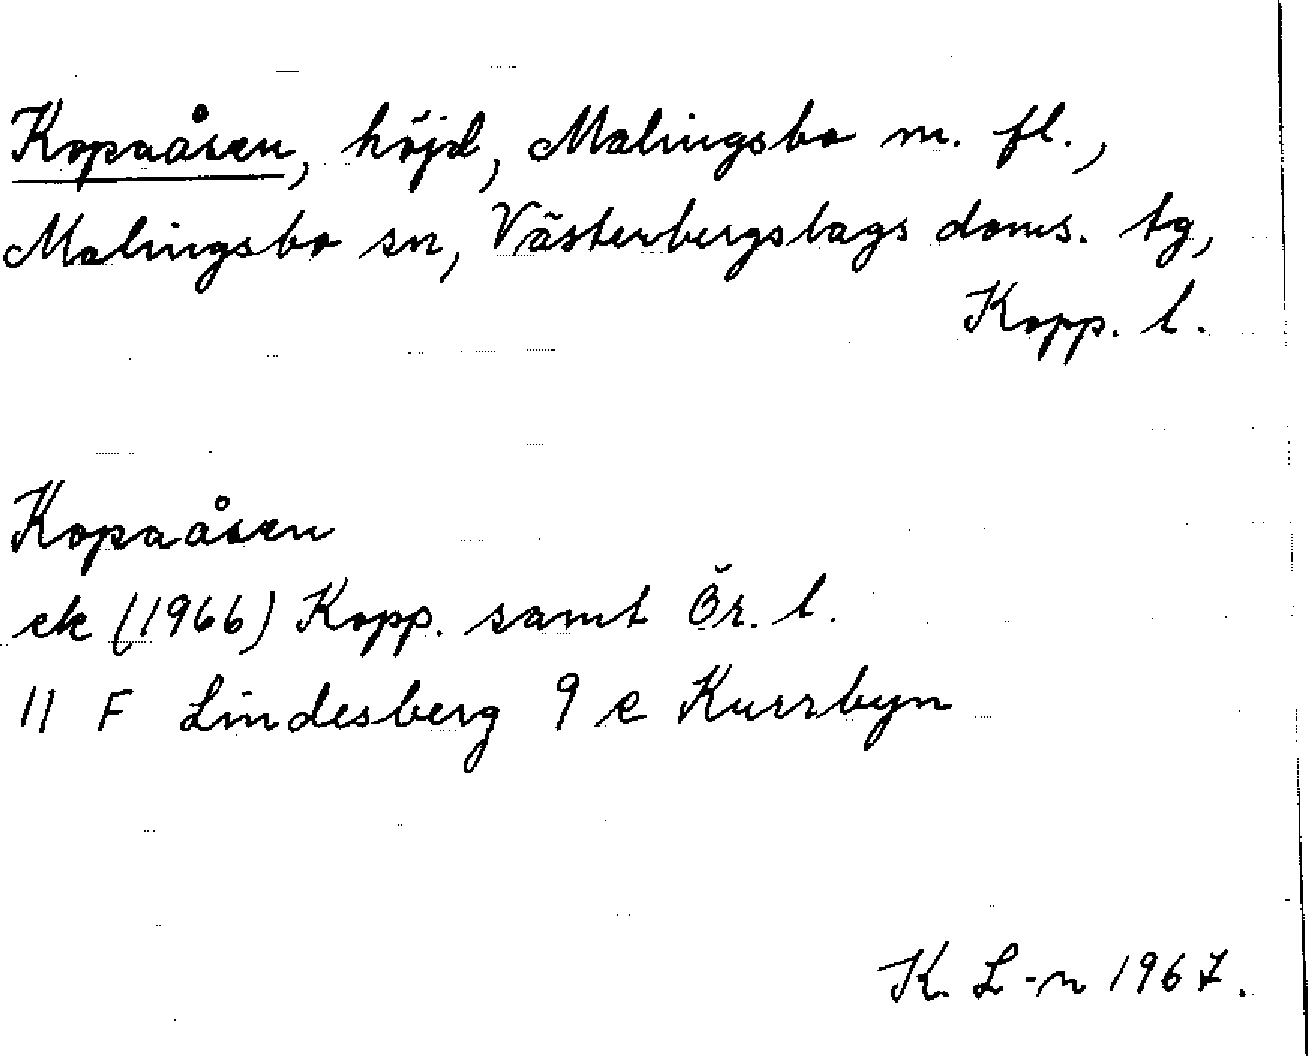 Kopaåsen, höjd, Malingsbo m. fl.,
Malingsbo sn, Västerbergslags doms. tg,
Kopp. l.
Kopaåsen
ek (1966) Kopp. samt Ör. l.
11 F Lindesberg 9 e Kursbyn
K. L-n 1967.